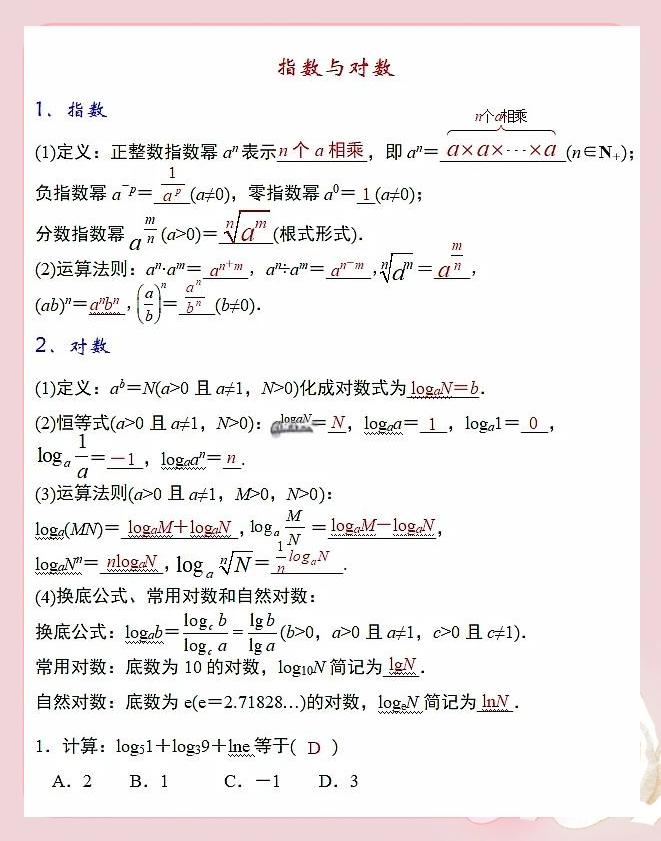 指数与对数
1、指数
n个a相乘
(1)定义：正整数指数幂 aⁿ 表示 n 个 a 相乘，即 aⁿ＝a×a×···×a(n∈N₊)；
负指数幂 a⁻ᵖ＝1/aᵖ(a≠0)，零指数幂 a⁰＝1(a≠0)；
分数指数幂 a^(m/n)(a>0)＝ⁿ√(aᵐ)(根式形式).
(2)运算法则：aⁿ·aᵐ＝aⁿ⁺ᵐ，aⁿ÷aᵐ＝aⁿ⁻ᵐ，ⁿ√(aᵐ)＝a^(m/n)，
(ab)ⁿ＝aⁿbⁿ，(a/b)ⁿ＝aⁿ/bⁿ(b≠0).
2、对数
(1)定义：aᵇ＝N(a>0 且 a≠1，N>0)化成对数式为 logₐN＝b.
(2)恒等式(a>0 且 a≠1，N>0)：a^(logₐN)＝N，logₐa＝1，logₐ1＝0，
logₐ(1/a)＝－1，logₐaⁿ＝n.
(3)运算法则(a>0 且 a≠1，M>0，N>0)：
logₐ(MN)＝logₐM＋logₐN，logₐ(M/N)＝logₐM－logₐN，
logₐNⁿ＝nlogₐN，logₐⁿ√N＝(1/n)logₐN.
(4)换底公式、常用对数和自然对数：
换底公式：logₐb＝log_c b/log_c a＝lg b/lg a(b>0，a>0 且 a≠1，c>0 且 c≠1).
常用对数：底数为 10 的对数，log₁₀N 简记为 lgN.
自然对数：底数为 e(e＝2.71828…)的对数，logₑN 简记为 lnN.
1．计算：log₅1＋log₃9＋lne 等于( D )
A．2 B．1 C．－1 D．3